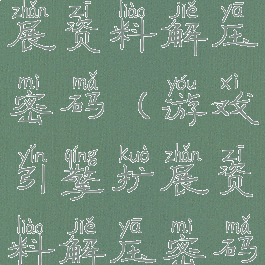 zhǎn zī liào jiě yā
展资料解压
mì mǎ yóu xì
密码（游戏
yǐn qíng kuò zhǎn zī
引擎扩展资
liào jiě yā mì mǎ
料解压密码